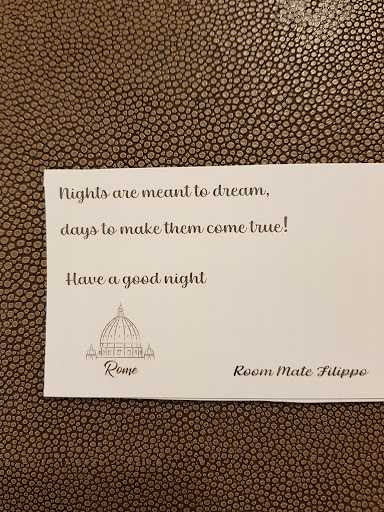 Nights are meant to dream,
days to make them come true!
Have a good night
Rome
Room Mate Filippo